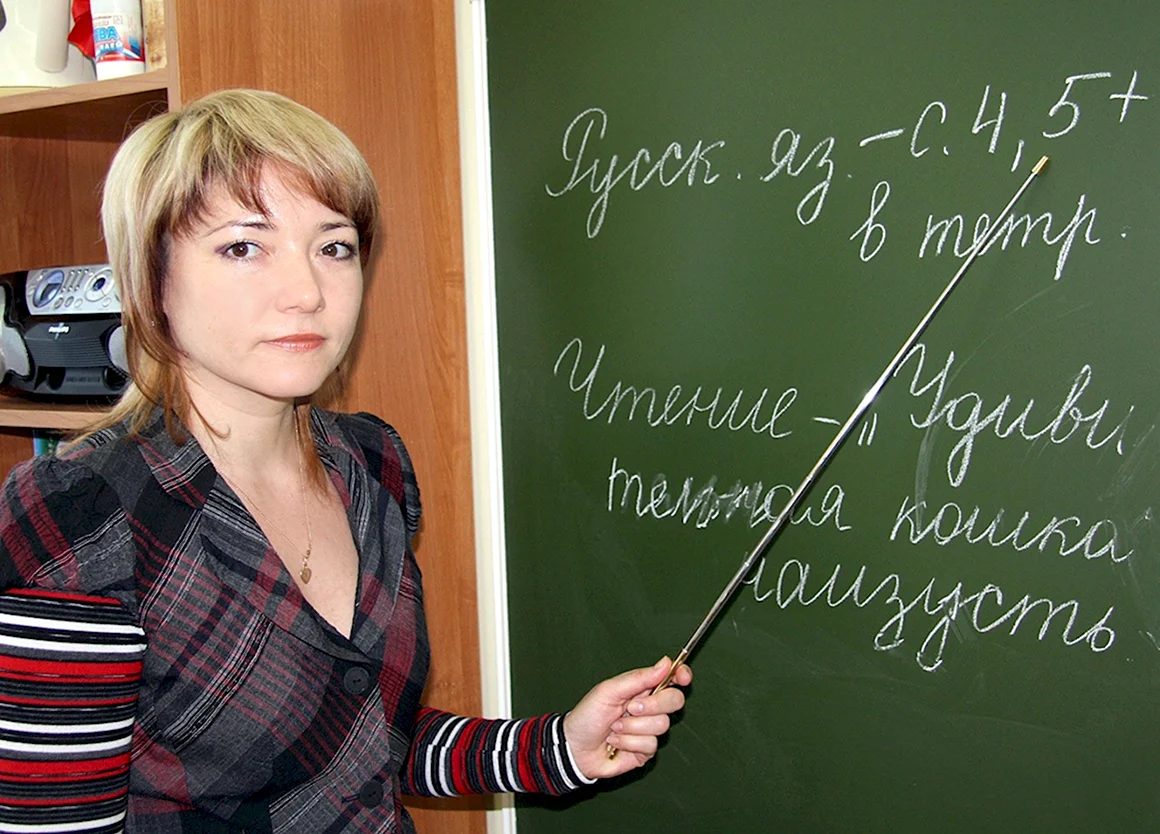 Русск. яз. – С. 4, 5+
в тетр.
Чтение – „Удиви
тельная кошка"
наизусть
PHILIPS